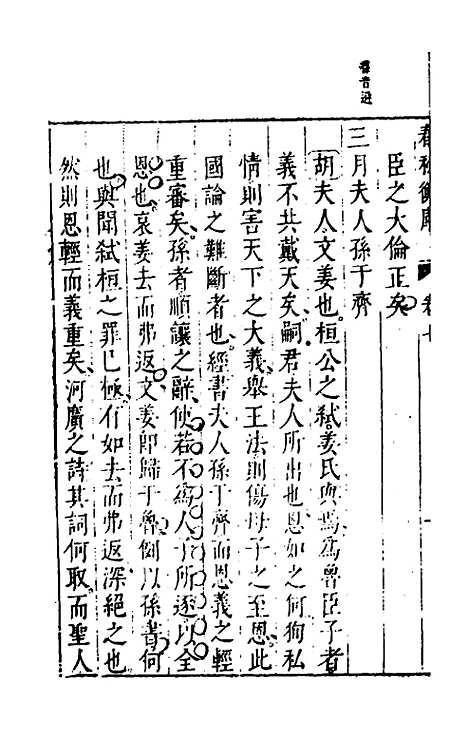 孫音遜
春秋衡庫 卷七
臣之大倫正矣
三月夫人孫于齊
胡夫人文姜也桓公之弒姜氏與焉為魯臣子者
義不共戴天矣嗣君夫人所出也恩如之何狥私
情則害天下之大義舉王法則傷母子之至恩此
國論之難斷者也經書夫人孫于齊而恩義之輕
重審矣孫者順讓之辭使若不為人子所逐以全
恩也哀姜去而弗返文姜即歸于魯例以孫書何
也與聞弒桓之罪已極有如去而弗返深絕之也
然則恩輕而義重矣河廣之詩其詞何取而聖人